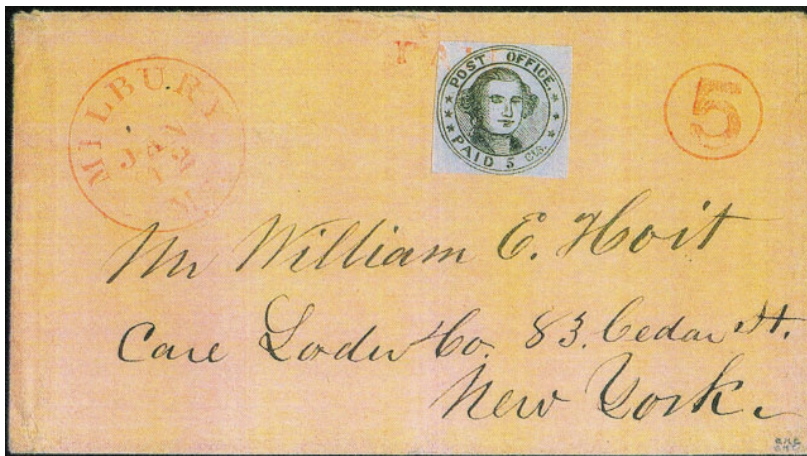 MILBURY MS
JAN
12
PAID
POST OFFICE.
PAID 5 Cts.
5
Mr William E. Hoit
Care Loder & Co. 83. Cedar St.
New York.